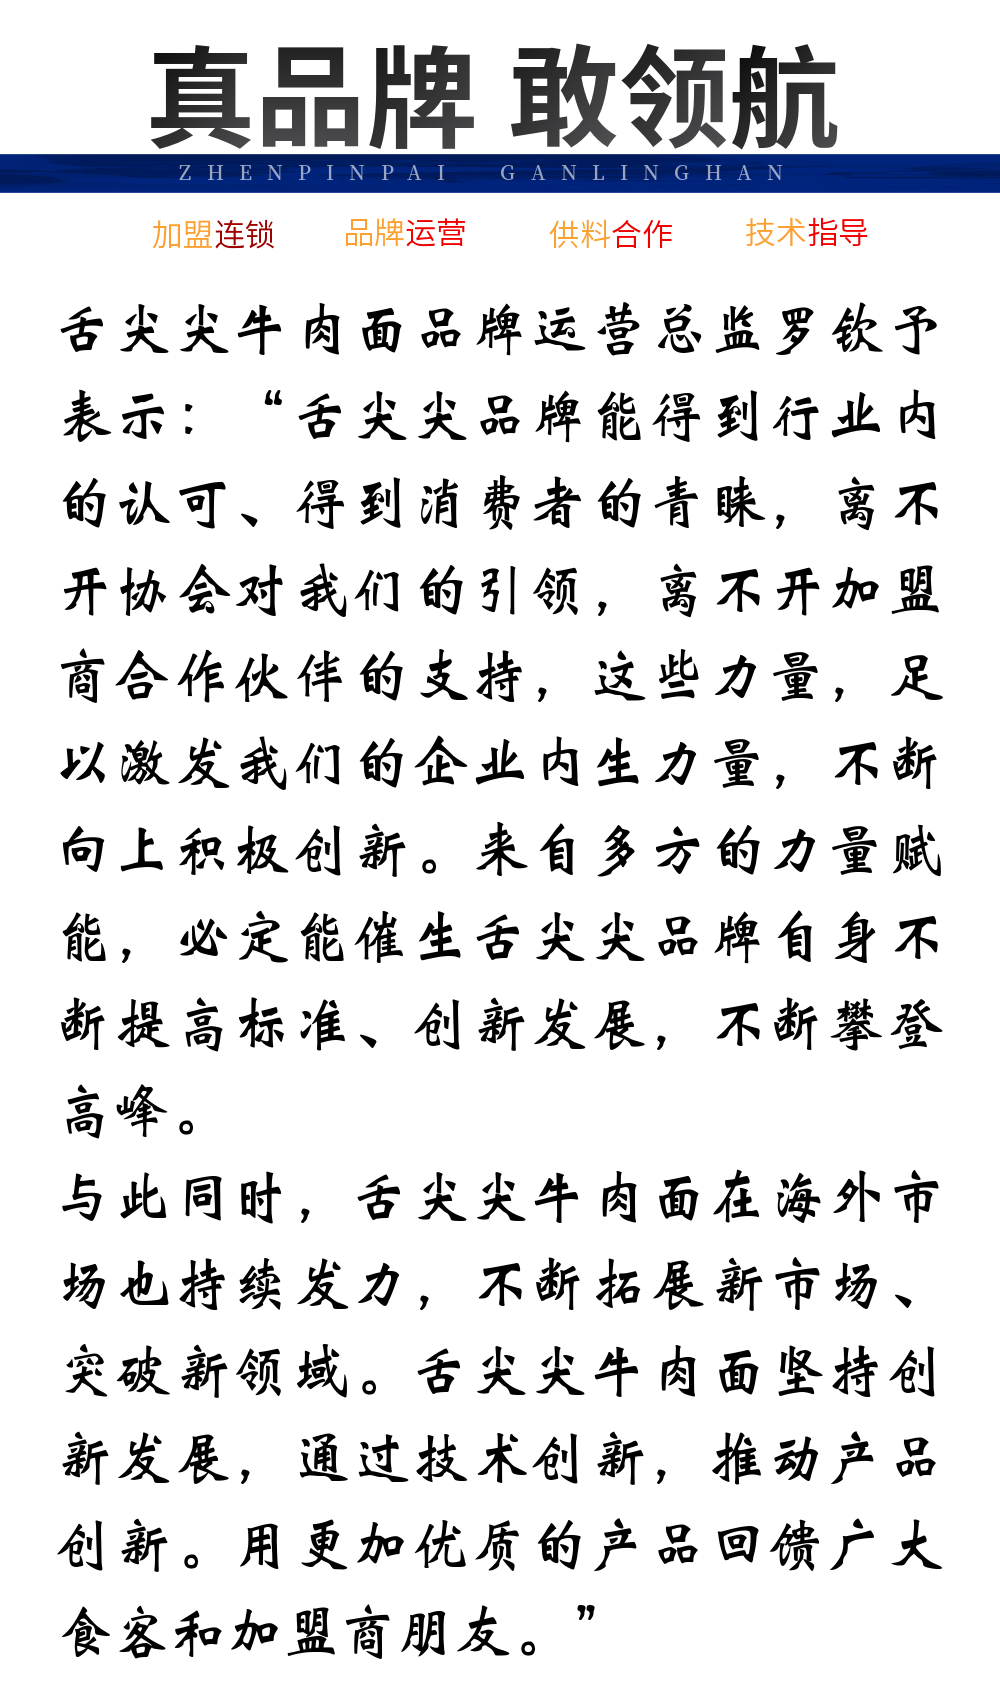 真品牌 敢领航
ZHENPINPAI GANLINGHAN
加盟连锁 品牌运营 供料合作 技术指导
舌尖尖牛肉面品牌运营总监罗钦予
表示：“舌尖尖品牌能得到行业内
的认可、得到消费者的青睐，离不
开协会对我们的引领，离不开加盟
商合作伙伴的支持，这些力量，足
以激发我们的企业内生力量，不断
向上积极创新。来自多方的力量赋
能，必定能催生舌尖尖品牌自身不
断提高标准、创新发展，不断攀登
高峰。
与此同时，舌尖尖牛肉面在海外市
场也持续发力，不断拓展新市场、
突破新领域。舌尖尖牛肉面坚持创
新发展，通过技术创新，推动产品
创新。用更加优质的产品回馈广大
食客和加盟商朋友。”